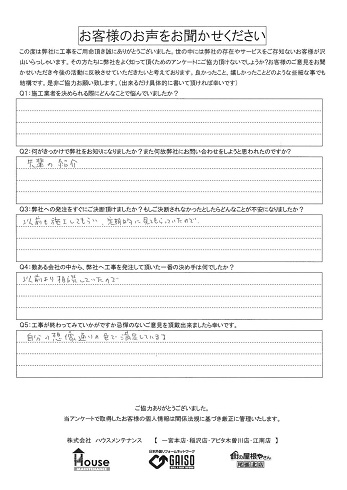 お客様のお声をお聞かせください
この度は弊社に工事をご用命頂き誠にありがとうございました。世の中には弊社の存在やサービスをご存知ないお客様が沢
山いらっしゃいます。その方たちに弊社をよく知って頂くためのアンケートにご協力頂けないでしょうか?お客様のご意見をお聞
かせいただき今後の活動に反映させていただきたいと考えております。良かったこと、嬉しかったことどのような些細な事でも
結構です。是非ご協力お願い致します。(出来るだけ具体的に書いて頂ければ幸いです)
Q1:施工業者を決められる際にどんなことで悩んでいましたか?
Q2:何がきっかけで弊社をお知りになりましたか?また何故弊社にお問い合わせをしようと思われたのですか?
先輩の紹介
Q3:弊社への発注をすぐにご決断頂けましたか?もしご決断されなかったとしたらどんなことが不安になりましたか?
以前も施工してもらい、定期的に見てもらっていたので
Q4:数ある会社の中から、弊社へ工事を発注して頂いた一番の決め手は何でしたか?
以前より相談していたので
Q5:工事が終わってみていかがですか忌憚のないご意見を頂戴出来ましたら幸いです。
自分の想像通りの色で満足しています
ご協力ありがとうございました。
当アンケートで取得したお客様の個人情報は関係法規に基づき厳正に管理いたします。
株式会社 ハウスメンテナンス 【 一宮本店・稲沢店・アピタ木曽川店・江南店 】
House
日本外装リフォームネットワーク
GAISO
街の屋根やさん